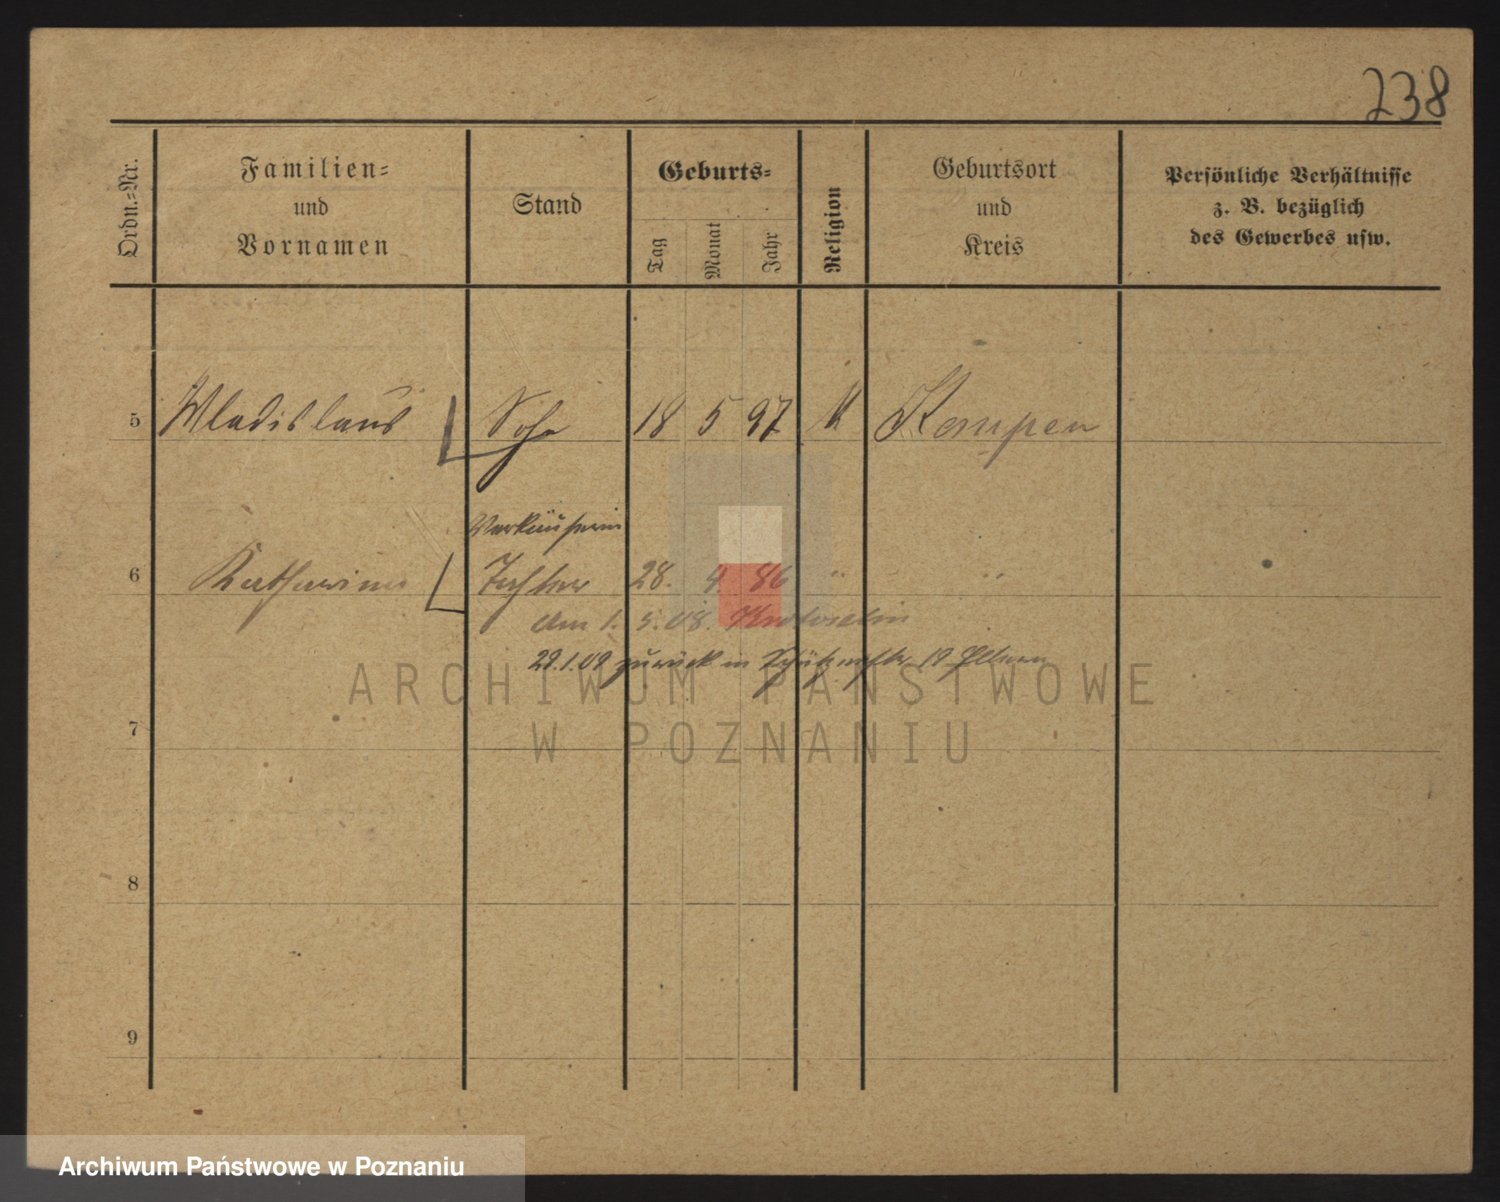 238
Ordn.-Nr.
Familien-
und
Vornamen
Stand
Geburts-
Tag
Monat
Jahr
Religion
Geburtsort
und
Kreis
Persönliche Verhältnisse
z. B. bezüglich
des Gewerbes usw.
5 Wladislaus Sohn 18 5 97 K Kempen
Verkäuferin
6 Katharina Tochter 28. 4. 86 " "
am 1. 5. 08. Krotoschin
29.1.09 zurück in 19 Eltern
7
8
9
ARCHIWUM PAŃSTWOWE
W POZNANIU
Archiwum Państwowe w Poznaniu